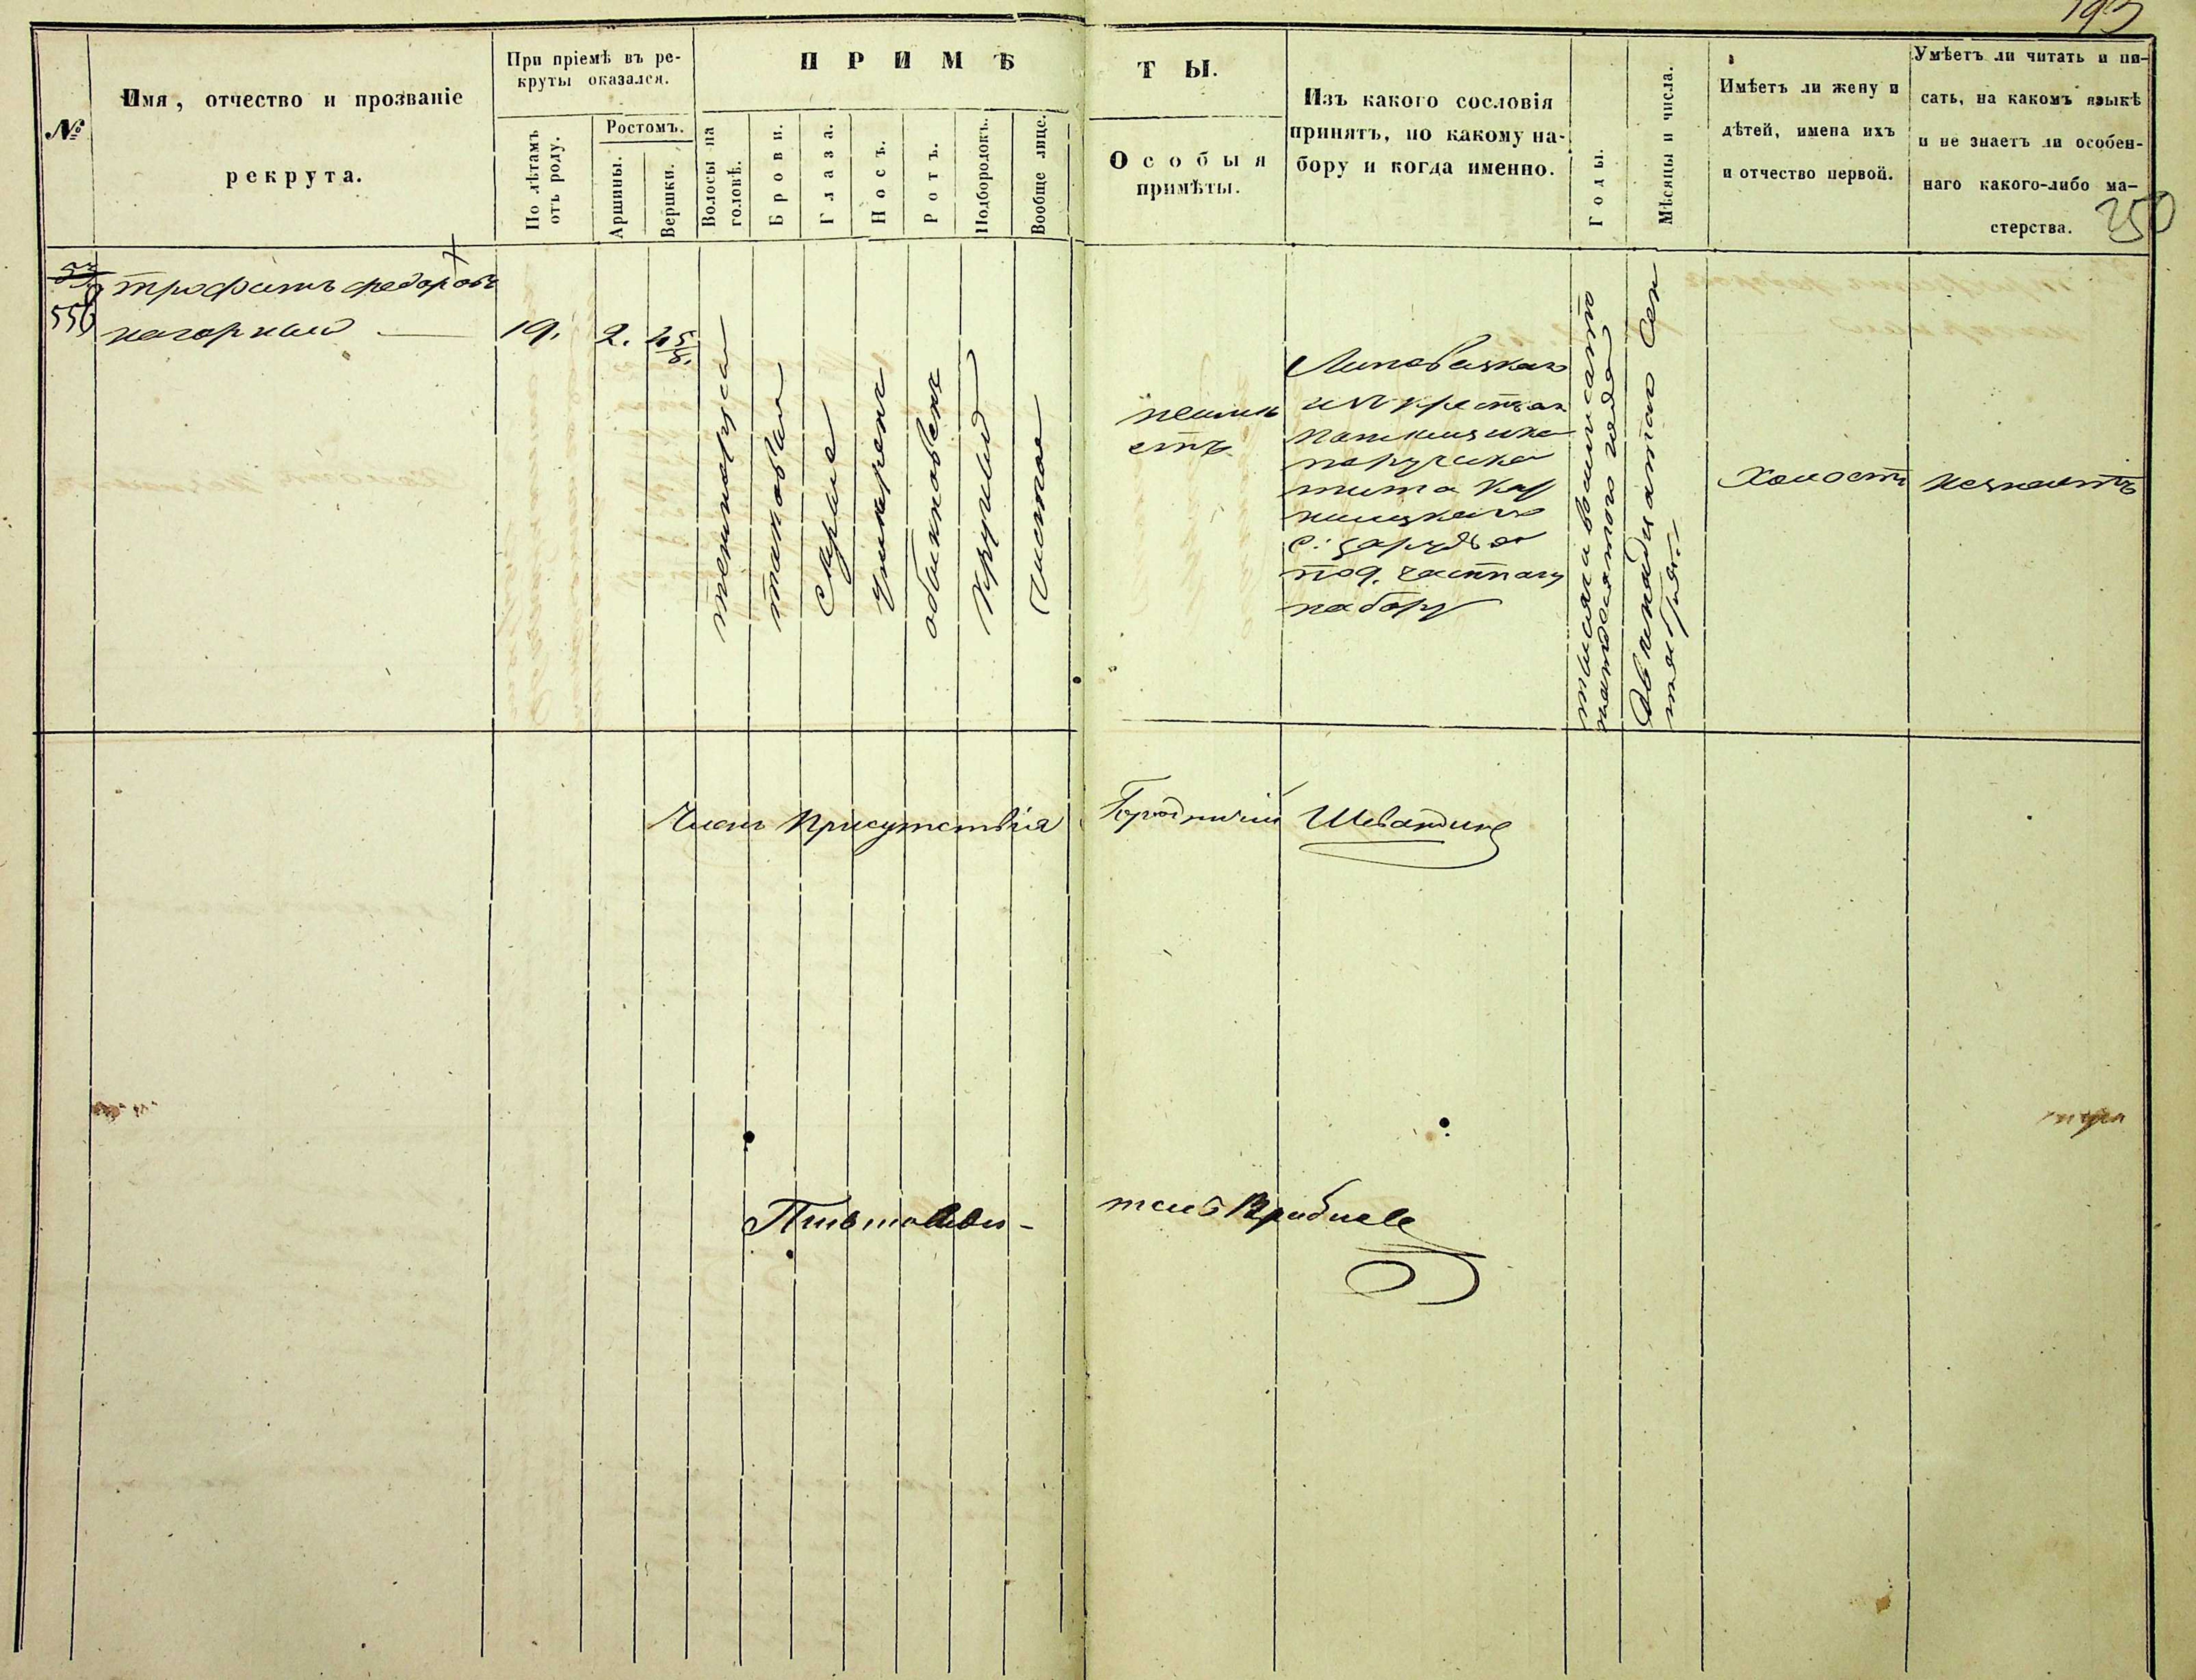 193
№
Имя, отчество и прозваніе
рекрута.
При пріемѣ въ ре-
круты оказался.
По лѣтамъ
отъ роду.
Ростомъ.
Аршины.
Вершки.
ПРИМѢ
ТЫ.
Волосы на
головѣ.
Брови.
Глаза.
Носъ.
Ротъ.
Подбородокъ.
Вообще лице.
Особыя
примѣты.
Изъ какого сословія
принятъ, по какому на-
бору и когда именно.
Годы.
Мѣсяцы и числа.
Имѣетъ ли жену и
дѣтей, имена ихъ
и отчество первой.
Умѣетъ ли читать и пи-
сать, на какомъ языкѣ
и не знаетъ ли особен-
наго какого-либо ма-
стерства.
250
556
трофимъ федоровъ
нагорный
19.
2.
4 5/8.
темнорусы
таковыи
серые
умеренъ
обыкновенъ
круглый
Чистое
неиме
етъ
Липовецкаго
изъ крестьян
помещика
поручика
тита
с:
под. частному
набору
тысяча восимсотъ
пятдесятого года
Двенадцатаго Сен
тября
Холостъ
незнаетъ
Членъ Присутствія
Городничій